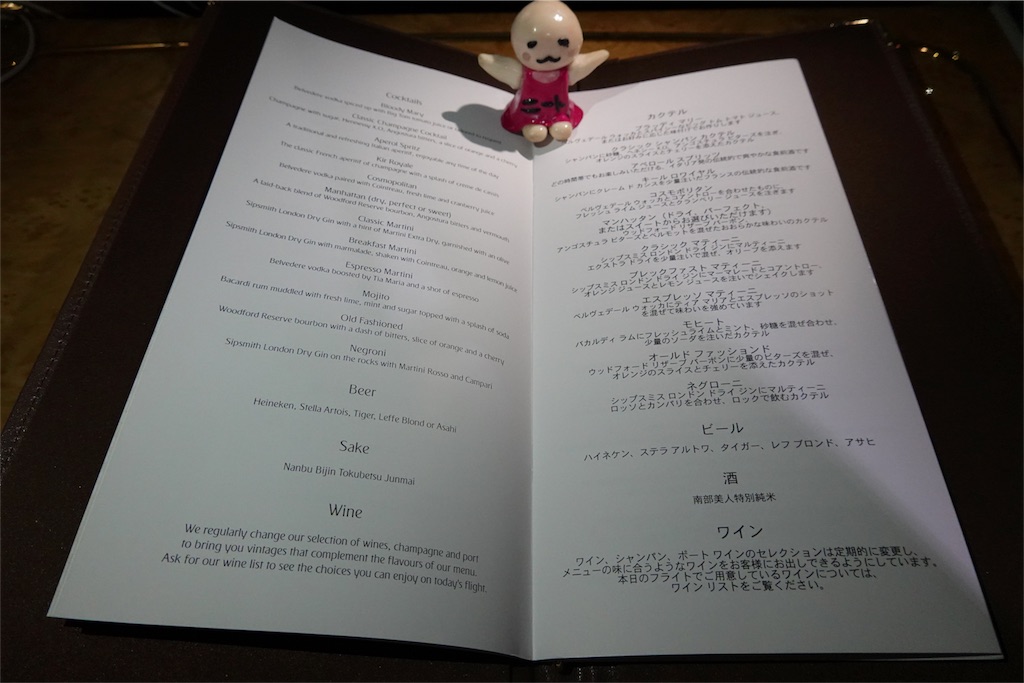 Cocktails
Bloody Mary
Belvedere vodka spiced up with Big Tom tomato juice
Classic Champagne Cocktail
Champagne with sugar, Hennessy X.O, Angostura bitters, a slice of orange and a cherry
Aperol Spritz
A traditional and refreshing Italian aperitif, enjoyable any time of the day
Kir Royale
The classic French aperitif of champagne with a splash of crème de cassis
Cosmopolitan
Belvedere vodka paired with Cointreau, fresh lime and cranberry juice
Manhattan (dry, perfect or sweet)
A laid-back blend of Woodford Reserve bourbon, Angostura bitters and vermouth
Classic Martini
Sipsmith London Dry Gin with a hint of Martini Extra Dry, garnished with an olive
Breakfast Martini
Sipsmith London Dry Gin with marmalade, shaken with Cointreau, orange and lemon juice
Espresso Martini
Belvedere vodka boosted by Tia Maria and a shot of espresso
Mojito
Bacardi rum muddled with fresh lime, mint and sugar topped with a splash of soda
Old Fashioned
Woodford Reserve bourbon with a dash of bitters, slice of orange and a cherry
Negroni
Sipsmith London Dry Gin on the rocks with Martini Rosso and Campari
Beer
Heineken, Stella Artois, Tiger, Leffe Blond or Asahi
Sake
Nanbu Bijin Tokubetsu Junmai
Wine
We regularly change our selection of wines, champagne and port
to bring you vintages that complement the flavours of our menu.
Ask for our wine list to see the choices you can enjoy on today's flight.
カクテル
ブラッディ マリー
クラシック シャンパン カクテル
シャンパンに砂糖、
オレンジのスライスとチェリーを添えたカクテル
アペロール スプリッツ
どの時間帯でもお楽しみいただける、イタリア糖の伝統的で爽やかな食前酒です
キール ロワイヤル
シャンパンにクレーム ド カシスを少量注いだフランスの伝統的な食前酒です
コスモポリタン
ベルヴェデール ウォッカとコアントローを合わせたものに、
フレッシュ ライム ジュースとクランベリー ジュースを注ぎます
マンハッタン（ドライ、パーフェクト、
またはスイートからお選びいただけます）
ウッドフォード リザーブ バーボン、
アンゴスチュラ ビターズとベルモットを混ぜたおおらかな味わいのカクテル
クラシック マティーニ
シップスミス ロンドン ドライ ジンにマルティーニ
エクストラ ドライを少量注いで混ぜ、オリーブを添えます
ブレックファスト マティーニ
シップスミス ロンドン ドライ ジンにマーマレードとコアントロー、
オレンジ ジュースとレモン ジュースを注いでシェイクします
エスプレッソ マティーニ
ベルヴェデール ウォッカにティア マリアとエスプレッソのショット
を混ぜて味わいを強めています
モヒート
バカルディ ラムにフレッシュライムとミント、砂糖を混ぜ合わせ、
少量のソーダを注いだカクテル
オールド ファッションド
ウッドフォード リザーブ バーボンに少量のビターズを混ぜ、
オレンジのスライスとチェリーを添えたカクテル
ネグローニ
シップスミス ロンドン ドライ ジンにマルティーニ
ロッソとカンパリを合わせ、ロックで飲むカクテル
ビール
ハイネケン、ステラ アルトワ、タイガー、レフ ブロンド、アサヒ
酒
南部美人特別純米
ワイン
ワイン、シャンパン、ポート ワインのセレクションは定期的に変更し、
メニューの味に合うようなワインをお客様にお出しできるようにしています。
本日のフライトでご用意しているワインについては、
ワイン リストをご覧ください。